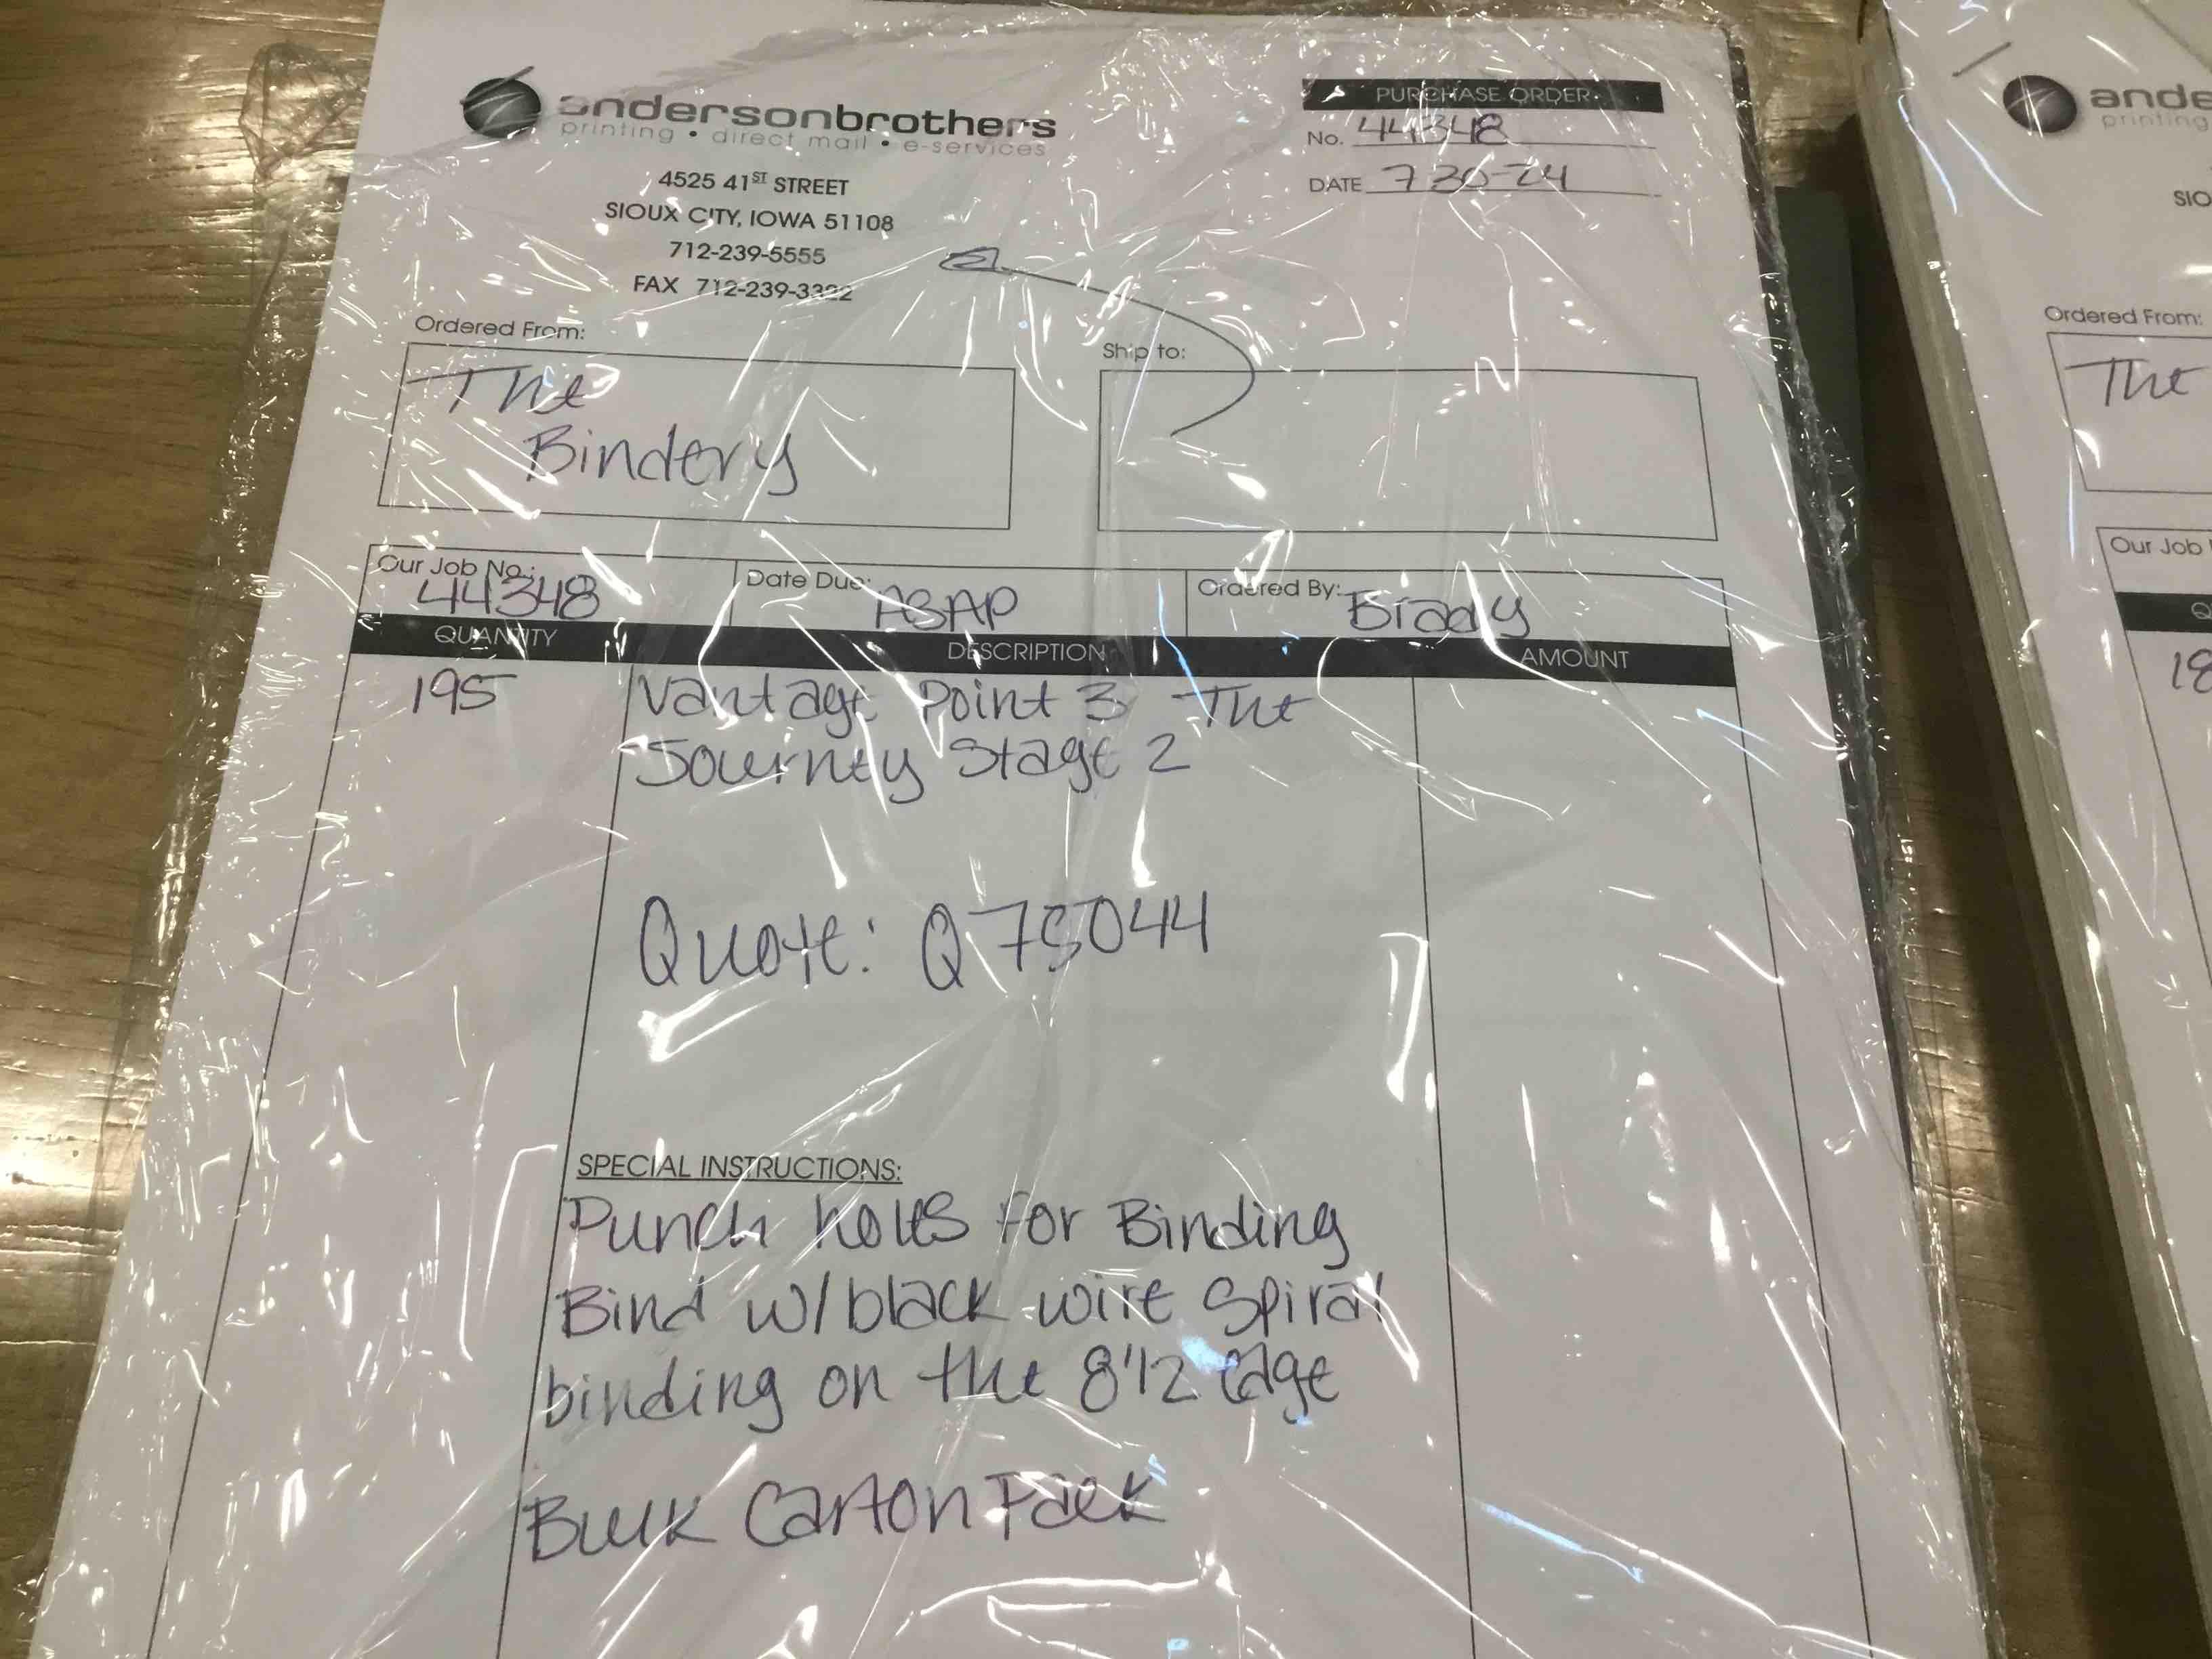 andersonbrothers
printing • direct mail • e-services
4525 41ST STREET
SIOUX CITY, IOWA 51108
712-239-5555
FAX 712-239-3322
PURCHASE ORDER
No. 44348
DATE 7-30-24
Ordered From:
The
Bindery
Ship to:
Our Job No.: 44348
Date Due: ASAP
Ordered By: Brady
QUANTITY DESCRIPTION AMOUNT
195 Vantage Point 3 The
Journey Stage 2
Quote: Q75044
SPECIAL INSTRUCTIONS:
Punch holes for Binding
Bind w/black wire Spiral
binding on the 8 1/2 edge
Bulk Carton Pack
ande
printing
SIO
Ordered From:
The
Our Job
Q
18